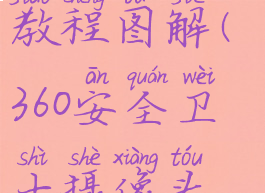 教程图解(
ān quán wèi
360安全卫
shì shè xiàng tóu
士摄像头